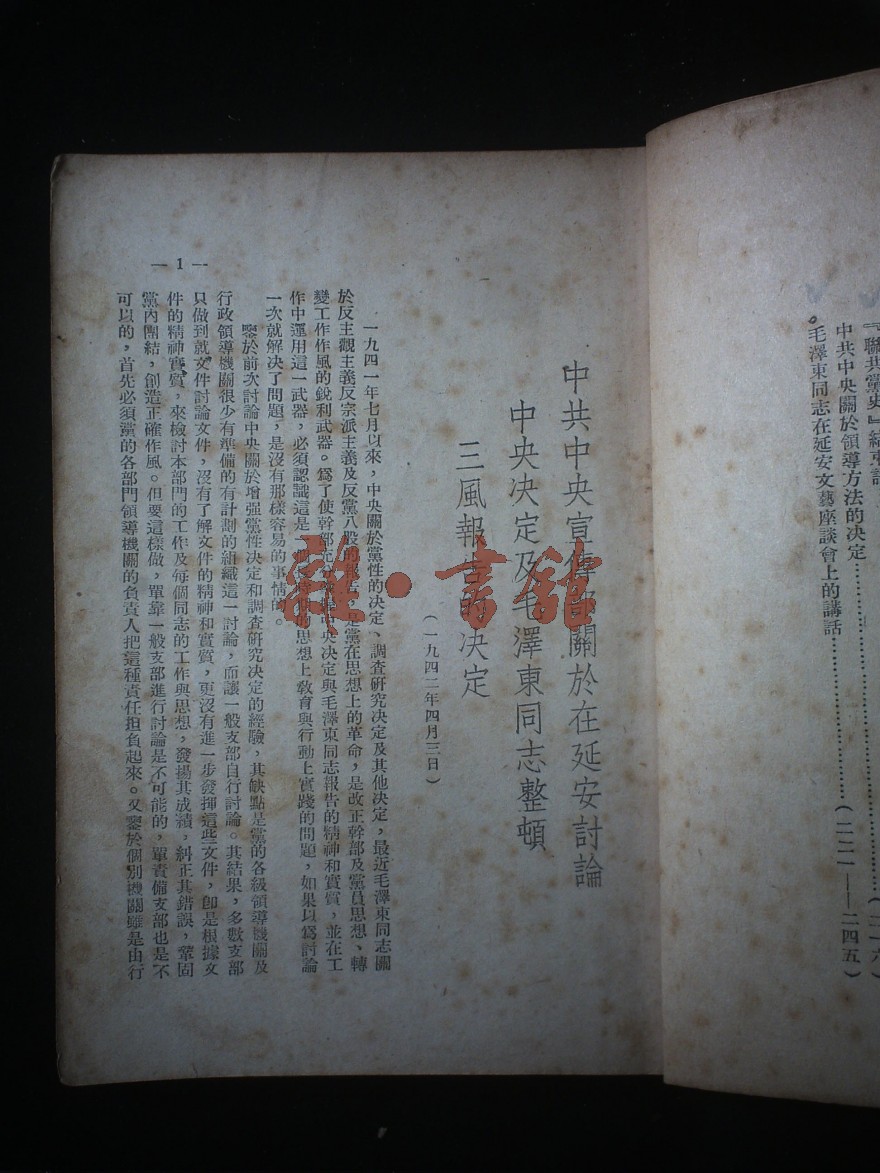 『聯共黨史』結束語
中共中央關於領導方法的決定
毛澤東同志在延安文藝座談會上的講話……(二二一——二四五)
中共中央宣傳部關於在延安討論
中央決定及毛澤東同志整頓
三風報告的決定
(一九四二年四月三日)
一九四一年七月以來，中央關於黨性的決定、調查研究決定及其他決定，最近毛澤東同志關
於反主觀主義反宗派主義及反黨八股的報告，是黨在思想上的革命，是改正幹部及黨員思想、轉
變工作作風的銳利武器。爲了使幹部充 中央決定與毛澤東同志報告的精神和實質，並在工
作中運用這一武器，必須認識這是一 的思想上敎育與行動上實踐的問題，如果以爲討論
一次就解決了問題，是沒有那樣容易的事情的。
鑒於前次討論中央關於增强黨性決定和調查研究決定的經驗，其缺點是黨的各級領導機關及
行政領導機關很少有準備的有計劃的組織這一討論，而讓一般支部自行討論。其結果，多數支部
只做到就文件討論文件，沒有了解文件的精神和實質，更沒有進一步發揮這些文件，卽是根據文
件的精神實質，來檢討本部門的工作及每個同志的工作與思想，發揚其成績，糾正其錯誤，鞏固
黨內團結，創造正確作風。但要這樣做，單靠一般支部進行討論是不可能的，單責備支部也是不
可以的，首先必須黨的各部門領導機關的負責人把這種責任担負起來。又鑒於個別機關雖是由行
— 1 —
雜·書館